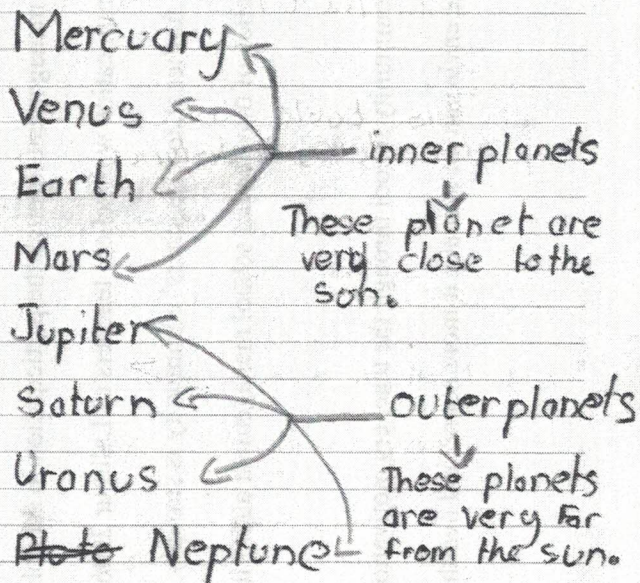 Mercuary
Venus
Earth
Mars
inner planets
These planet are
very close to the
son.
Jupiter
Saturn
Uranus
Pluto Neptune
outer planets
These planets
are very far
from the sun.